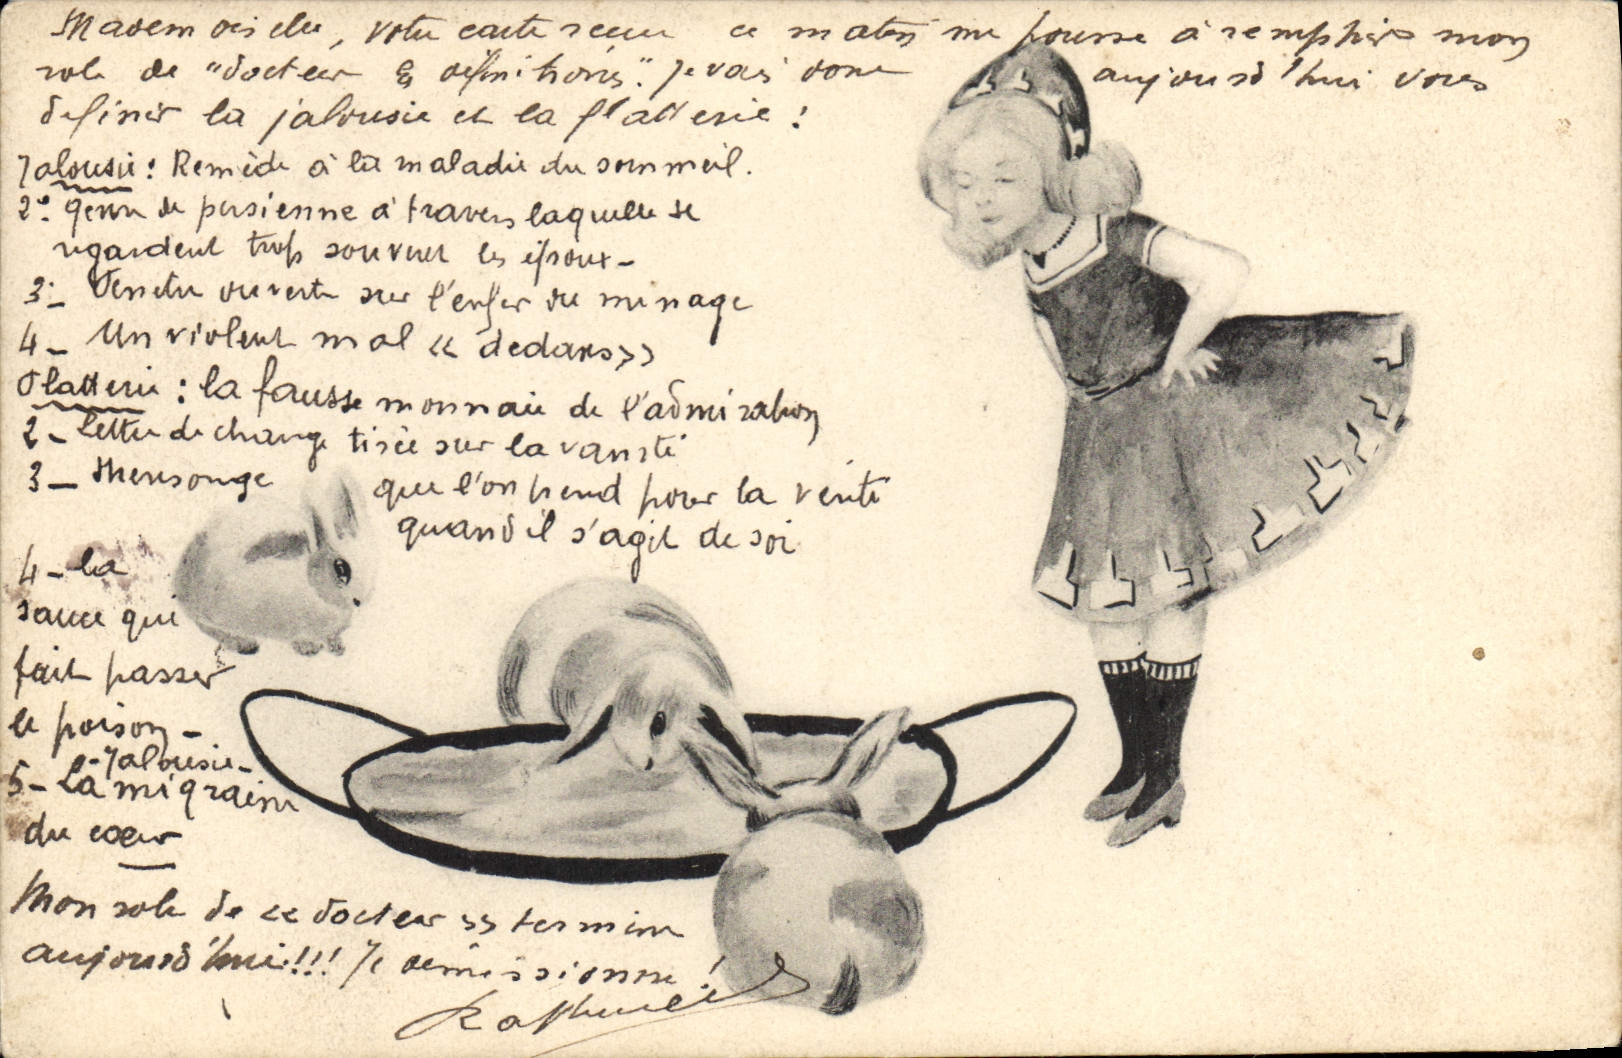 Mademoiselle, votre carte recue ce matin me pousse à remplir mon
role de "docteur ès définitions". Je vais donc aujourd'hui vous
definir la jalousie et la flatterie :
Jalousie : Remède à la maladie du sommeil.
2º genre de persienne à travers laquelle se
regardent trop souvent les époux -
3 - Fenetre ouverte sur l'enfer du menage
4 - Un violent mal « dedans »
Flatterie : la fausse monnaie de l'admiration
2 - Lettre de change tirée sur la vanité
3 - Mensonge que l'on prend pour la vérité
quand il s'agit de soi
4 - la
sauce qui
fait passer
le poison -
- Jalousie -
5 - La migraine
du cœur
Mon role de « docteur » termine
aujourd'hui !!! Je démissionne !